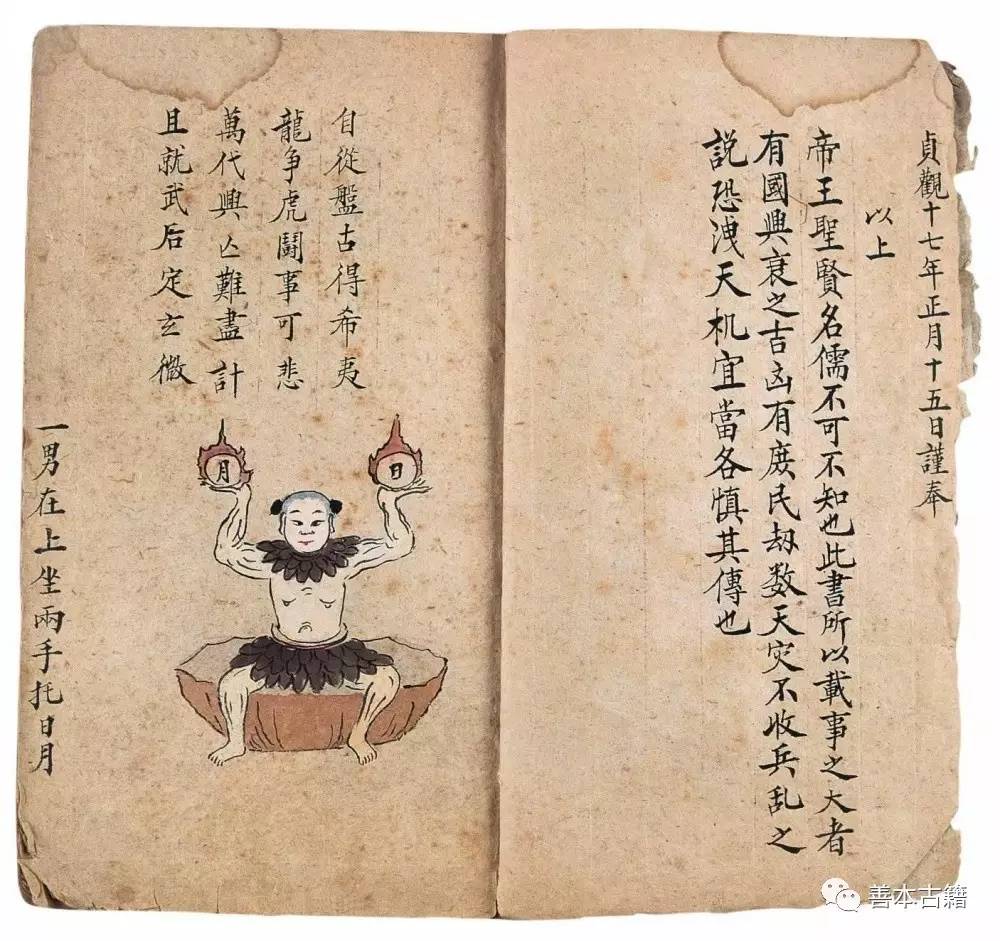 貞觀十七年正月十五日謹奉
以上
帝王聖賢名儒不可不知也此書所以載事之大者
有國興衰之吉凶有庶民刼数天灾不收兵乱之
説恐洩天机宜當各慎其傳也
自從盤古得希夷
龍争虎鬪事可悲
萬代興亡難盡計
且就武后定玄微
日
月
一男在上坐兩手托日月
善本古籍